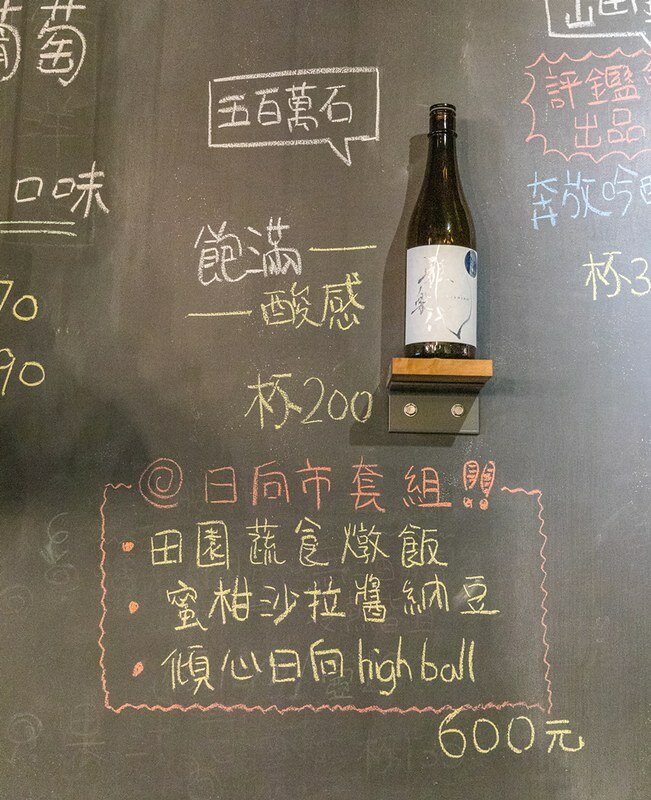 葡萄
口味
70
90
五百萬石
飽滿
酸感
杯200
評鑑
出品
奔放吟
杯3
@日向市套組!!
・田園蔬食燉飯
・蜜柑沙拉醬納豆
・傾心日向high ball
600元